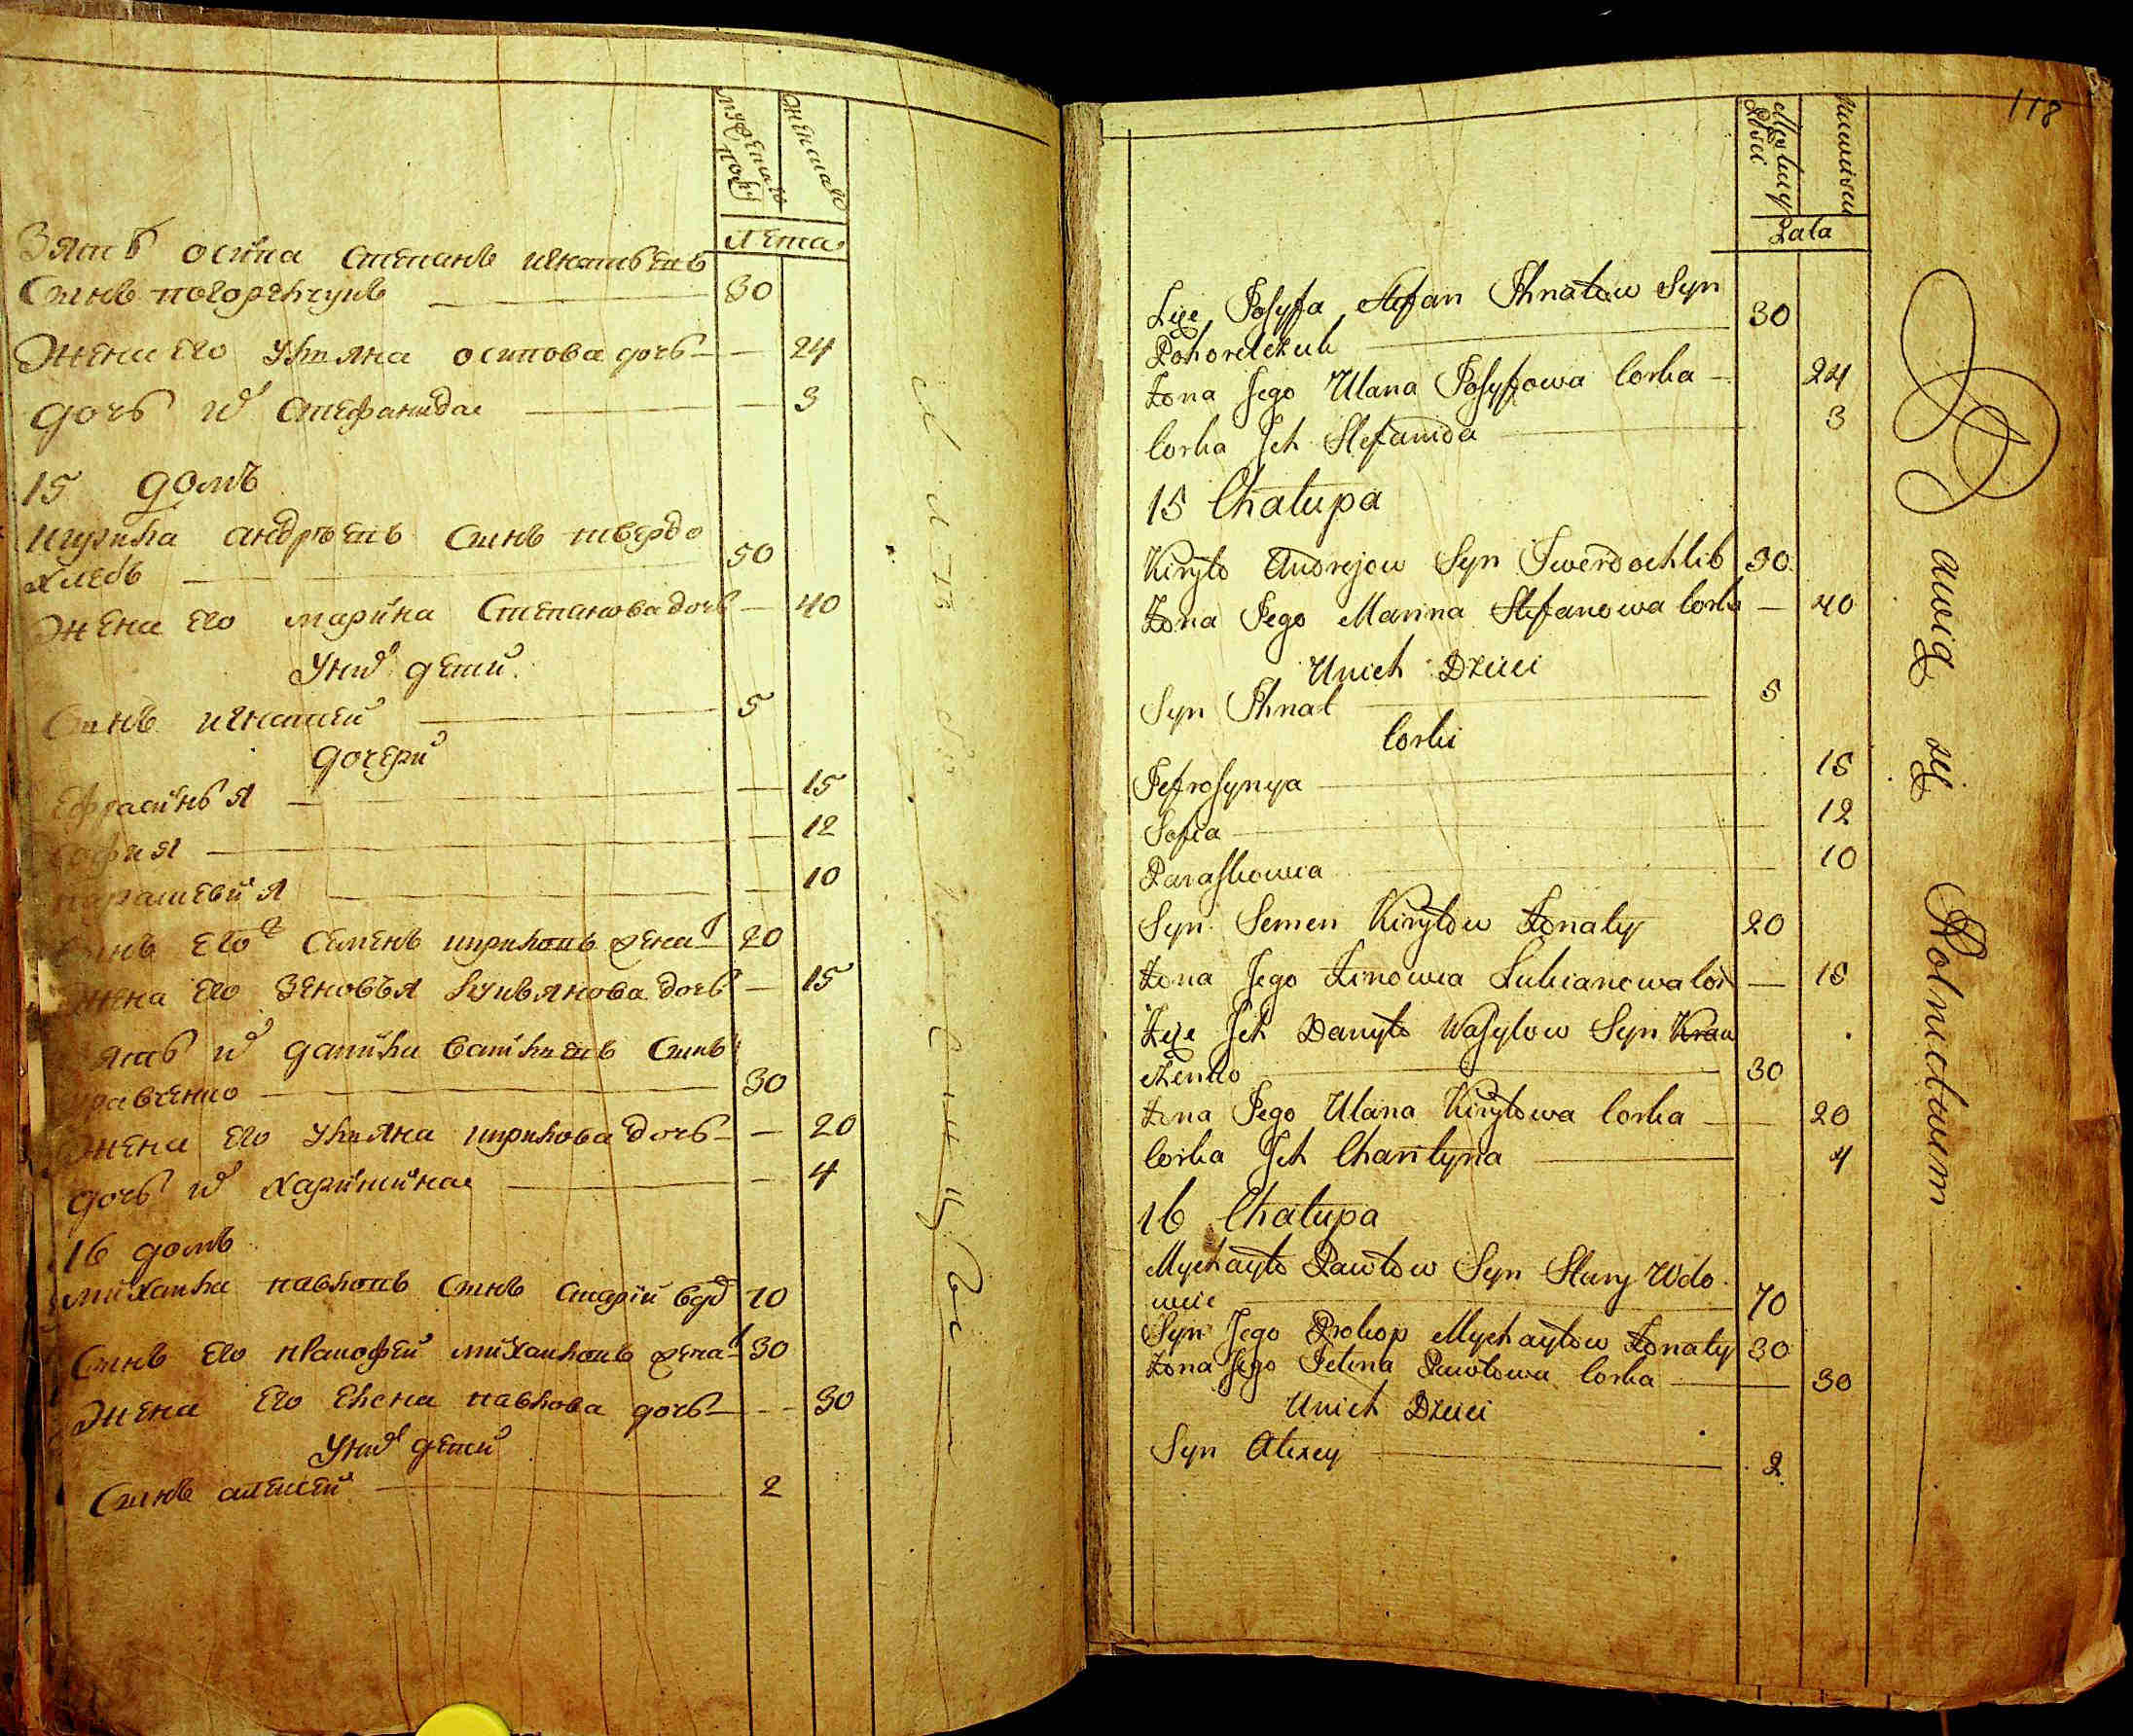 мужеска полу
женска
лета
Зять осипа степанъ игнатьевъ
сынъ погорелчукъ — 30
Жена его Улияна осипова дочь — 24
дочь их стефанида — 3
15 домъ
кирила андреевъ сынъ твердо
хлебъ — 50
Жена его марина степанова дочь — 40
У них дети
Сынъ игнатей — 5
дочери
Ефросинья — 15
софия — 12
парасковия — 10
сынъ его семенъ кириловъ женат — 20
жена его зеновья лукьянова дочь — 15
зять их данила василевъ сынъ
кравченко — 30
Жена его Улияна кирилова дочь — 20
дочь их харитина — 4
16 домъ
михаила павловъ сынъ старый вдо 70
Сынъ его прокофей михаиловъ женат 30
Жена его елена павлова дочь — 30
У них дети
Сынъ алексей — 2
118
Męskiey Płci
Lata
Zięć Josyfa Stefan Ihnatow Syn
Pohorelczuk — 30
Żona Jego Ulana Josyfowa Corka — 24
Corka Ich Stefanida — 3
15 Chałupa
Kiryło Andrejow Syn Twerdochlib 50
Żona Jego Marina Stefanowa Corka — 40
U nich Dzieci
Syn Ihnat — 5
Corki
Jefrosynya — 15
Sofia — 12
Paraskowia — 10
Syn Semen Kiryłow Żonaty 20
Żona Jego Zinowia Łukianowa Cor — 15
Zięć Ich Danyło Wasylow Syn Kraw
czenko — 30
Żona Jego Ulana Kiryłowa Corka — 20
Corka Ich Charytyna — 4
16 Chałupa
Mychayło Pawłow Syn Stary Wdo
wiec — 70
Syn Jego Prokop Mychayłow Żonaty 30
Żona Jego Jelena Pawłowa Corka — 30
U nich Dzieci
Syn Alexey — 2
awią się Rolnictwem